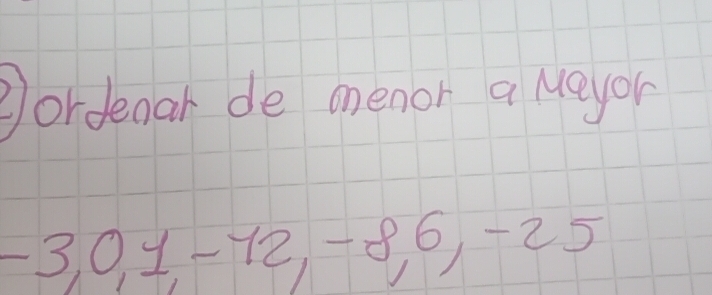 2) ordenar de menor a Mayor
-3, 0, 1, -12, -8, 6, -25